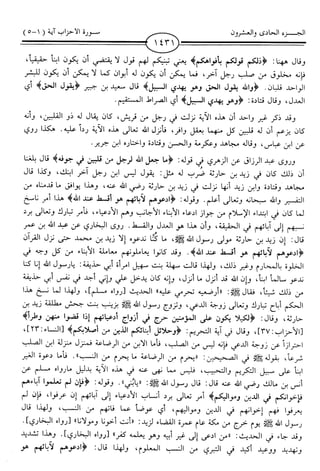 الجـزء الحادى والعشرون
١٤٣١
سورة الأحزاب آية (١-٥)
وقال ههنا: ﴿ذلكم قولكم بأفواهكم﴾ يعني تبنيكم لهم قول لا يقتضي أن يكون ابناً حقيقياً،
فإنه مخلوق من صلب رجل آخر، فما يمكن أن يكون له أبوان كما لا يمكن أن يكون للبشر
الواحد قلبان. ﴿والله يقول الحق وهو يهدي السبيل﴾ قال سعيد بن جبير ﴿يقول الحق﴾ أي
العدل، وقال قتادة: ﴿وهو يهدي السبيل﴾ أي الصراط المستقيم.
وقد ذكر غير واحد أن هذه الآية نزلت في رجل من قريش، كان يقال له ذو القلبين، وأنه
كان يزعم أن له قلبين كل منهما بعقل وافر، فأنزل الله تعالى هذه الآية رداً عليه. هكذا روي
عن ابن عباس، وقاله مجاهد وعكرمة والحسن وقتادة واختاره ابن جرير.
وروى عبد الرزاق عن الزهري في قوله: ﴿ما جعل الله لرجل من قلبين في جوفه﴾ قال بلغنا
أن ذلك كان في زيد بن حارثة ضرب له مثل: يقول ليس ابن رجل آخر ابنك، وكذا قال
مجاهد وقتادة وابن زيد أنها نزلت في زيد بن حارثة رضي الله عنه، وهذا يوافق ما قدمناه من
التفسير والله سبحانه وتعالى أعلم. وقوله: ﴿ادعوهم لآبائهم هو أقسط عند الله﴾ هذا أمر ناسخ
لما كان في ابتداء الإسلام من جواز ادعاء الأبناء الأجانب وهم الأدعياء، فأمر تبارك وتعالى برد
نسبهم إلى آبائهم في الحقيقة، وأن هذا هو العدل والقسط. روى البخاري عن عبد الله بن عمر
قال: إن زيد بن حارثة مولى رسول الله ﷺ، ما كنا ندعوه إلا زيد بن محمد حتى نزل القرآن
﴿ادعوهم لآبائهم هو أقسط عند الله﴾. وقد كانوا يعاملونهم معاملة الأبناء من كل وجه في
الخلوة بالمحارم وغير ذلك، ولهذا قالت سهلة بنت سهيل امرأة أبي حذيفة: يارسول الله إنا كنا
ندعو سالماً ابناً، وإن الله قد أنزل ما أنزل، وإنه كان يدخل علي وإني أجد في نفس أبي حذيفة
من ذلك شيئاً، فقال ﷺ: «أرضعيه تحرمي عليه» الحديث [رواه مسلم]، ولهذا لما نسخ هذا
الحكم أباح تبارك وتعالى زوجة الدعي، وتزوج رسول الله ﷺ بزينب بنت جحش مطلقة زيد بن
حارثة، وقال: ﴿لكيلا يكون على المؤمنين حرج في أزواج أدعيائهم إذا قضوا منهن وطراً﴾
[الأحزاب: ٣٧]، وقال في آية التحريم: ﴿وحلائل أبنائكم الذين من أصلابكم﴾ [النساء: ٢٣]،
احترازاً عن زوجة الدعي فإنه ليس من الصلب، فأما الابن من الرضاعة فمنزل منزلة ابن الصلب
شرعاً، بقوله ﷺ في الصحيحين: «يحرم من الرضاعة ما يحرم من النسب». فأما دعوة الغير
ابناً على سبيل التكريم والتحبيب، فليس مما نهى عنه في هذه الآية بدليل مارواه مسلم عن
أنس بن مالك رضي الله عنه قال: قال رسول الله ﷺ: «يابني». وقوله: ﴿فإن لم تعلموا آباءهم
فإخوانكم في الدين ومواليكم﴾ أمر تعالى برد أنساب الأدعياء إلى آبائهم إن عرفوا، فإن لم
يعرفوا فهم إخوانهم في الدين ومواليهم، أي عوضاً عما فاتهم من النسب، ولهذا قال
رسول الله ﷺ يوم خرج من مكة عام عمرة القضاء لزيد: «أنت أخونا ومولانا» [رواه البخاري].
وقد جاء في الحديث: «من ادعى إلى غير أبيه وهو يعلمه كفر» [رواه البخاري]. وهذا تشديد
وتهديد ووعيد أكيد في التبري من النسب المعلوم، ولهذا قال: ﴿ادعوهم لآبائهم هو